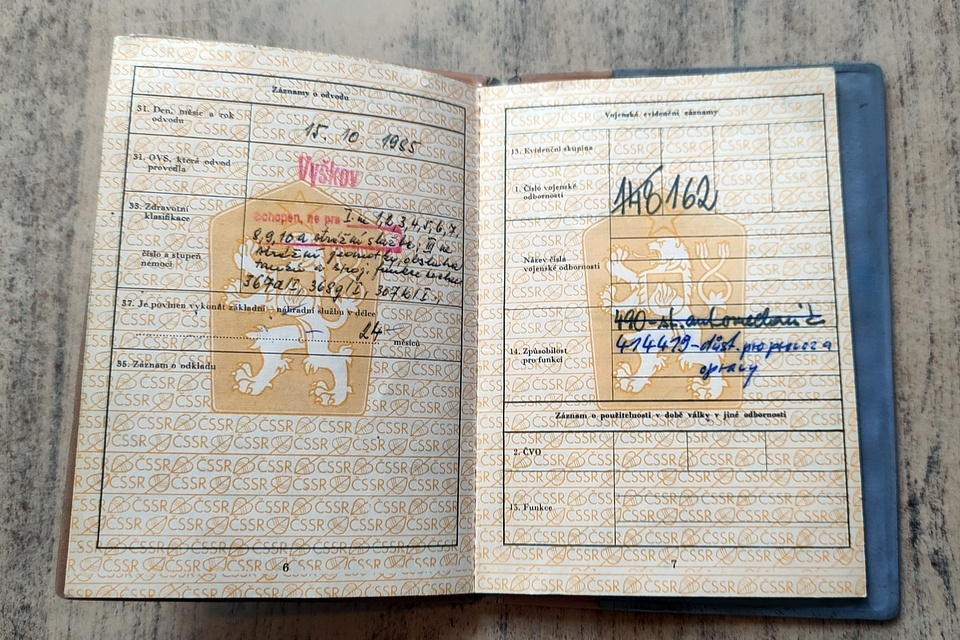 Záznamy o odvodu
31. Den, měsíc a rok
odvodu
15. 10 1985
31. OVS, která odvod
provedla
Vyškov
33. Zdravotní
klasifikace
Schopen, ne pro I. ne 1,2,3,4,5,6,7,
8,9,10 a strážní službe, III ne
číslo a stupeň
nemoci
367a/I, 368g/I, 367k/I
37. Je povinen vykonat základní - náhradní službu v délce
24 měsíců
35. Záznam o odkladu
6
Vojenské evidenční záznamy
13. Evidenční skupina
1. Číslo vojenské
odbornosti
148 162
Název čísla
vojenské odbornosti
490-st. automechanik
14. Způsobilost
pro funkci
414419-důst. pro provoz a
opravy
Záznam o použitelnosti v době války v jiné odbornosti
2. ČVO
15. Funkce
7